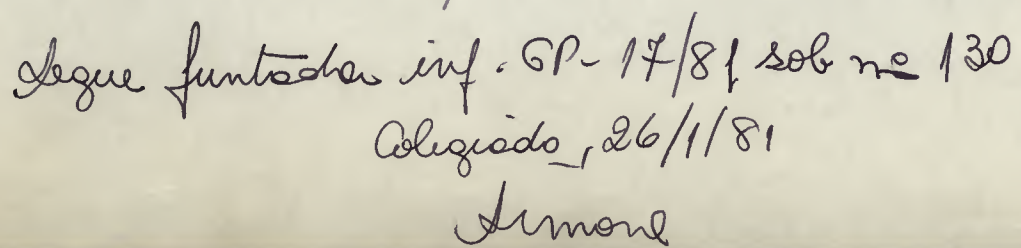 Segue juntada inf. GP- 17/81 sob nº 130
Colegiado, 26/1/81
Simone